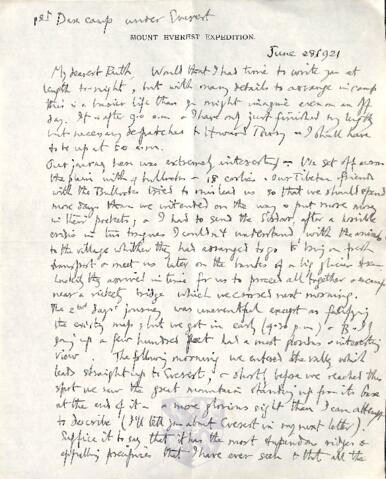 1st Base camp under Everest
MOUNT EVEREST EXPEDITION.
June 28 1921
My dearest Ruth, Would that I had time to write you at
length to-night, but with many details to arrange in camp
this is a busier life than you might imagine even on an off
day. It is after 9.0 p.m. & I have only just finished my lengthy
but necessary despatches to Howard Bury & I shall have
to be up at
Our journey here was extremely interesting – We set off across
the plain with 4 bullocks – 18 coolies. Our Tibetan friends
with the Bullocks tried to mislead us so that we should spend
more days than we intended on the way & put more money
in their pockets; & I had to send the Sirdar, after a horrible
in two tongues I couldn't understand with the
to the village whither they had arranged to go to bring on fresh
transport & meet us later on the banks of a big glacier stream
luckily they arrived in time for us to proceed all together & we camped
near a rickety bridge which we crossed next morning.
The 2nd day's journey was uneventful except as falsifying
the existing map; but we got in early (4.30 p.m.) & B. & I
going up a few hundred feet had a most glorious & interesting
view. The following morning we entered the valley which
leads straight up to Everest, & shortly before we reached this
spot we saw the great mountain standing up from its base
at the end of it – a more glorious sight than I can attempt
to describe (I'll tell you about Everest in my next letter).
Suffice it to say that it has the most stupendous ridges &
appalling precipices that I have ever seen & that all the